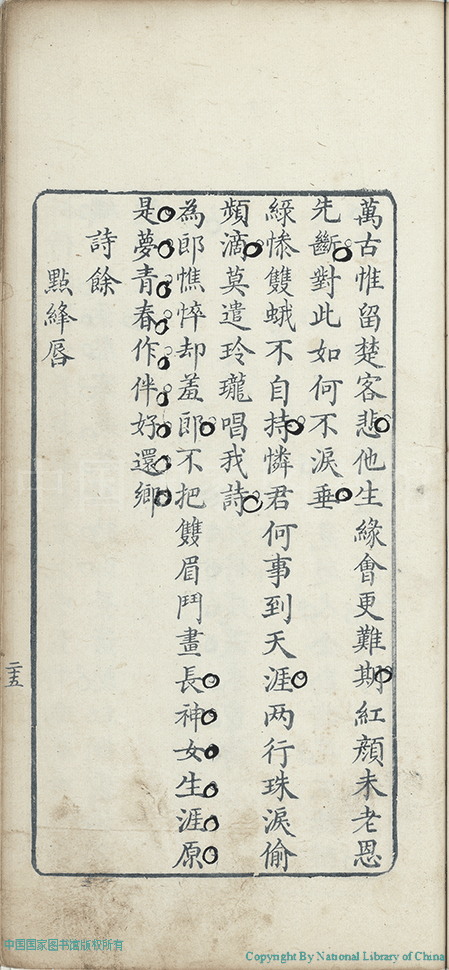 萬古惟留楚客悲他生緣會更難期紅顏未老恩
先斷對此如何不淚垂
綠慘雙蛾不自持憐君何事到天涯两行珠淚偷
頻滴莫遣玲瓏唱我詩
為郎憔悴却羞郎不把雙眉鬥畫長神女生涯原
是夢青春作伴好還鄉
詩餘
點絳唇
二五
中国国家图书馆版权所有
Copyright By National Library of China